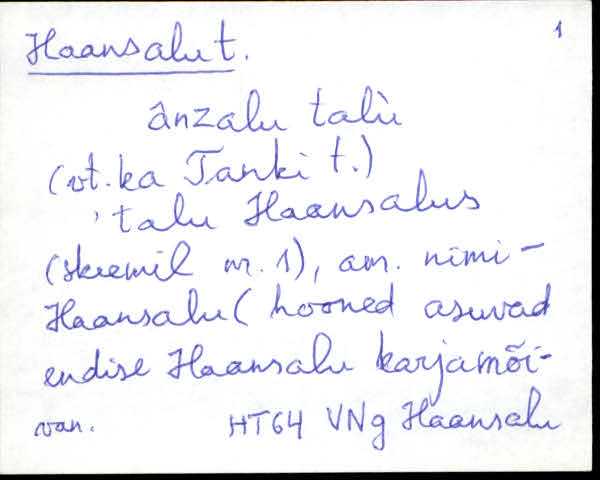 1
Haansalu t.
ânzalu talù
(vt. ka Tanki t.)
' talu Haansalus
(skeemil nr. 1), am. nimi -
Haansalu ( hooned asuvad
endise Haansalu karjamõi-
van. HT64 VNg Haansalu